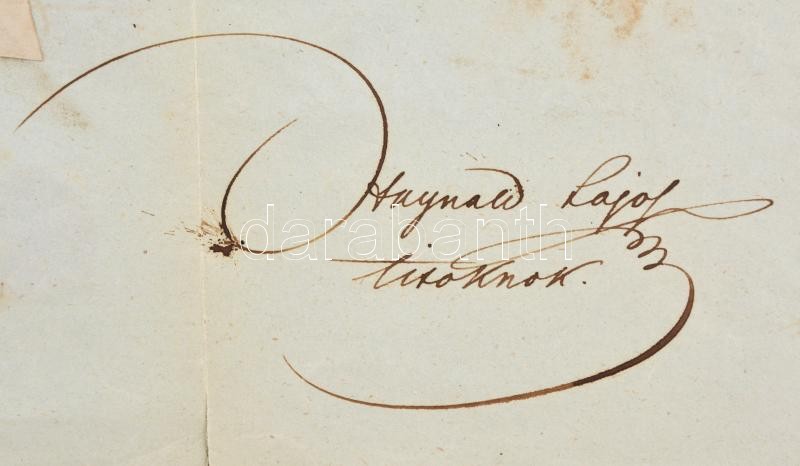 Haynald Lajos
titoknok.
darabanth